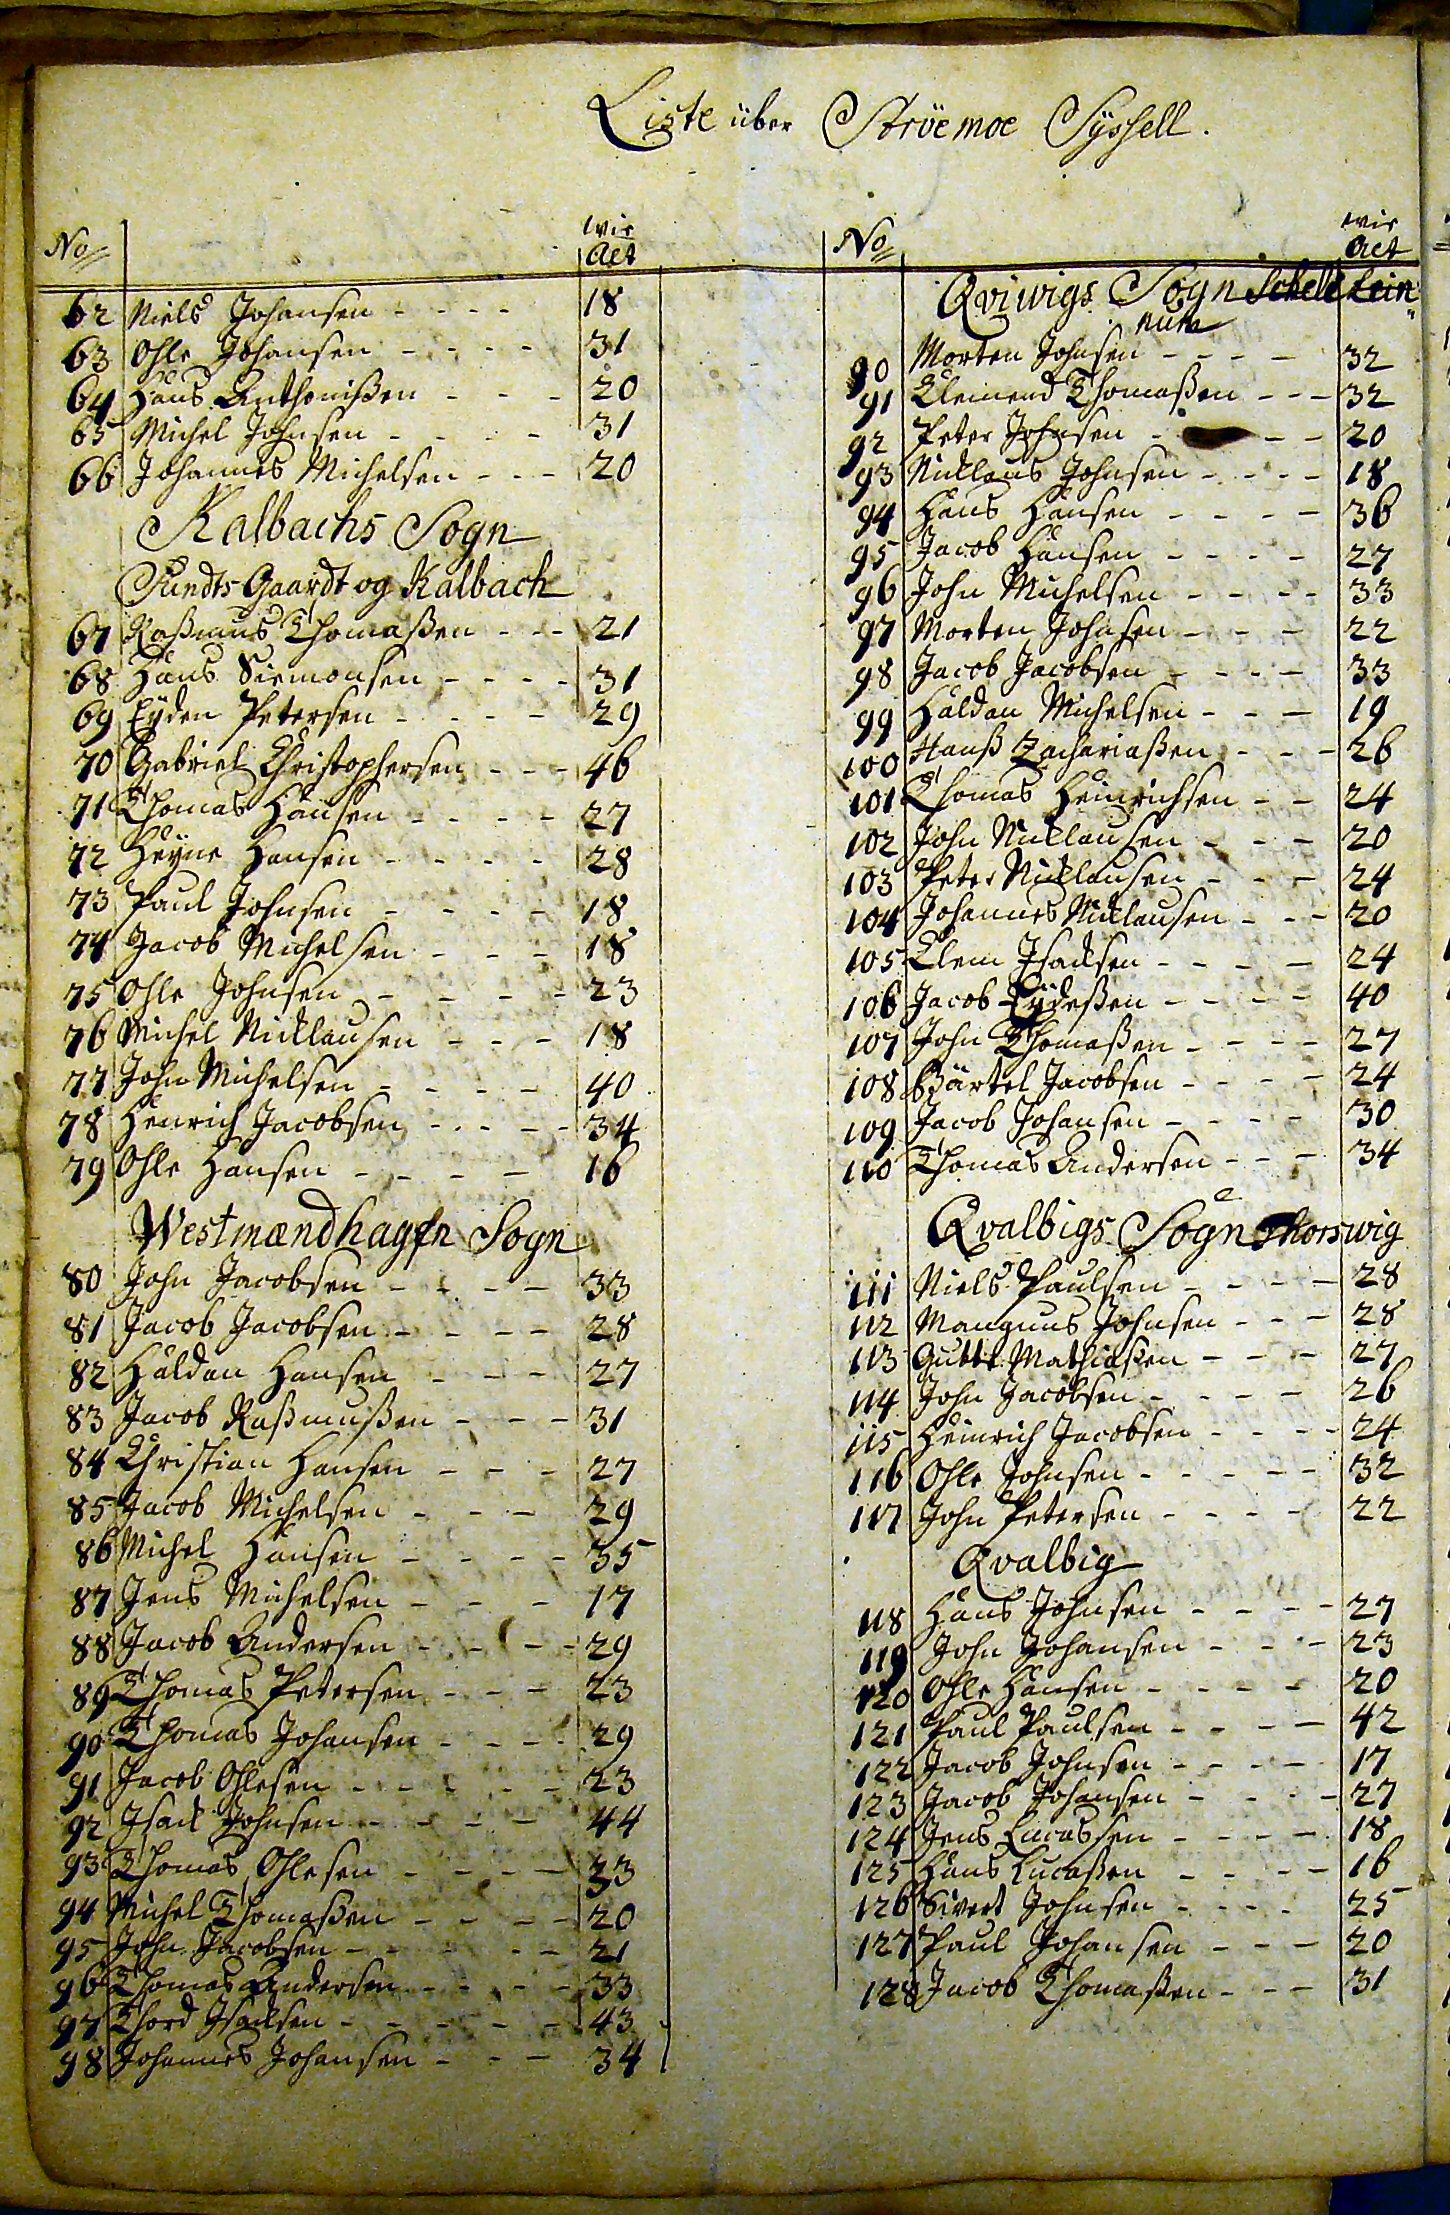 Liste über Ströemoe Sÿssell.
No
wie
Alt
62 Niels Johansen - - - - 18
63 Ohle Johansen - - - - 31
64 Hans Anthonißen - - - 20
65 Michel Johnsen - - - - 31
66 Johannes Michelsen - - - 20
Kalbachs Sogn
Sundts Gaardt og Kalbach
67 Raßmus Thomaßen - - - 21
68 Hans Siemonsen - - - - 31
69 Eÿden Petersen - - - - 29
70 Gabriel Christophersen - - - 46
71 Thomas Hansen - - - - 27
72 Heyne Hansen - - - - 28
73 Paul Johnsen - - - - 18
74 Jacob Michelsen - - - 18
75 Ohle Johnsen - - - - 23
76 Michel Nicklausen - - - 18
77 John Michelsen - - - - 40
78 Henrich Jacobsen - - - - 34
79 Ohle Hansen - - - - 16
Westmændhagfn Sogn
80 John Jacobsen - - - - 33
81 Jacob Jacobsen - - - - 28
82 Haldan Hansen - - - 27
83 Jacob Raßmußen - - - 31
84 Christian Hansen - - - 27
85 Jacob Michelsen - - - 29
86 Michel Hansen - - - - 35
87 Jens Michelsen - - - 17
88 Jacob Andersen - - - - 29
89 Thomas Petersen - - - 23
90 Thomas Johansen - - - - 29
91 Jacob Ohlesen - - - - - 23
92 Isack Johnsen - - - - 44
93 Thomas Ohlesen - - - - 33
94 Michel Thomaßen - - - - 20
95 John Jacobsen - - - - - 21
96 Thomas Andersen - - - - 33
97 Thord Isacksen - - - - - 43
98 Johannes Johansen - - - 34
No
wie
Alt
Qviwigs Sogn
90 Morten Johnsen - - - - 32
91 Clemend Thomaßen - - - 32
92 Peter Johnsen - - - 20
93 Nicklaus Johnsen - - - - 18
94 Hans Hansen - - - - 36
95 Jacob Hansen - - - - 27
96 John Michelsen - - - - 33
97 Morten Johnsen - - - 22
98 Jacob Jacobsen - - - - 33
99 Haldan Michelsen - - - 19
100 Hanß Zachariaßen - - - 26
101 Thomas Heinrichsen - - 24
102 John Nicklausen - - - 20
103 Peter Nicklausen - - - 24
104 Johannes Nicklausen - - - 20
105 Clem Isacksen - - - - 24
106 Jacob Eÿdeßen - - - - 40
107 John Thomaßen - - - - 27
108 Bärtel Jacobsen - - - - 24
109 Jacob Johansen - - - - 30
110 Thomas Andersen - - - 34
Qvalbigs Sogn Thorswig
111 Niels Paulsen - - - - 28
112 Mangnus Johnsen - - - 28
113 Gutte Mathiaßen - - - 27
114 John Jacobsen - - - - 26
115 Heinrich Jacobsen - - - - 24
116 Ohle Johnsen - - - - - 32
117 John Petersen - - - - 22
Qvalbig
118 Hans Johnsen - - - - 27
119 John Johansen - - - 23
120 Ohle Hansen - - - - 20
121 Paul Paulsen - - - - 42
122 Jacob Johnsen - - - - 17
123 Jacob Johansen - - - - 27
124 Jens Lucassen - - - - 18
125 Hans Lucaßen - - - - 16
126 Sivert Johnsen - - - - 25
127 Paul Johansen - - - 20
128 Jacob Thomaßen - - - 31